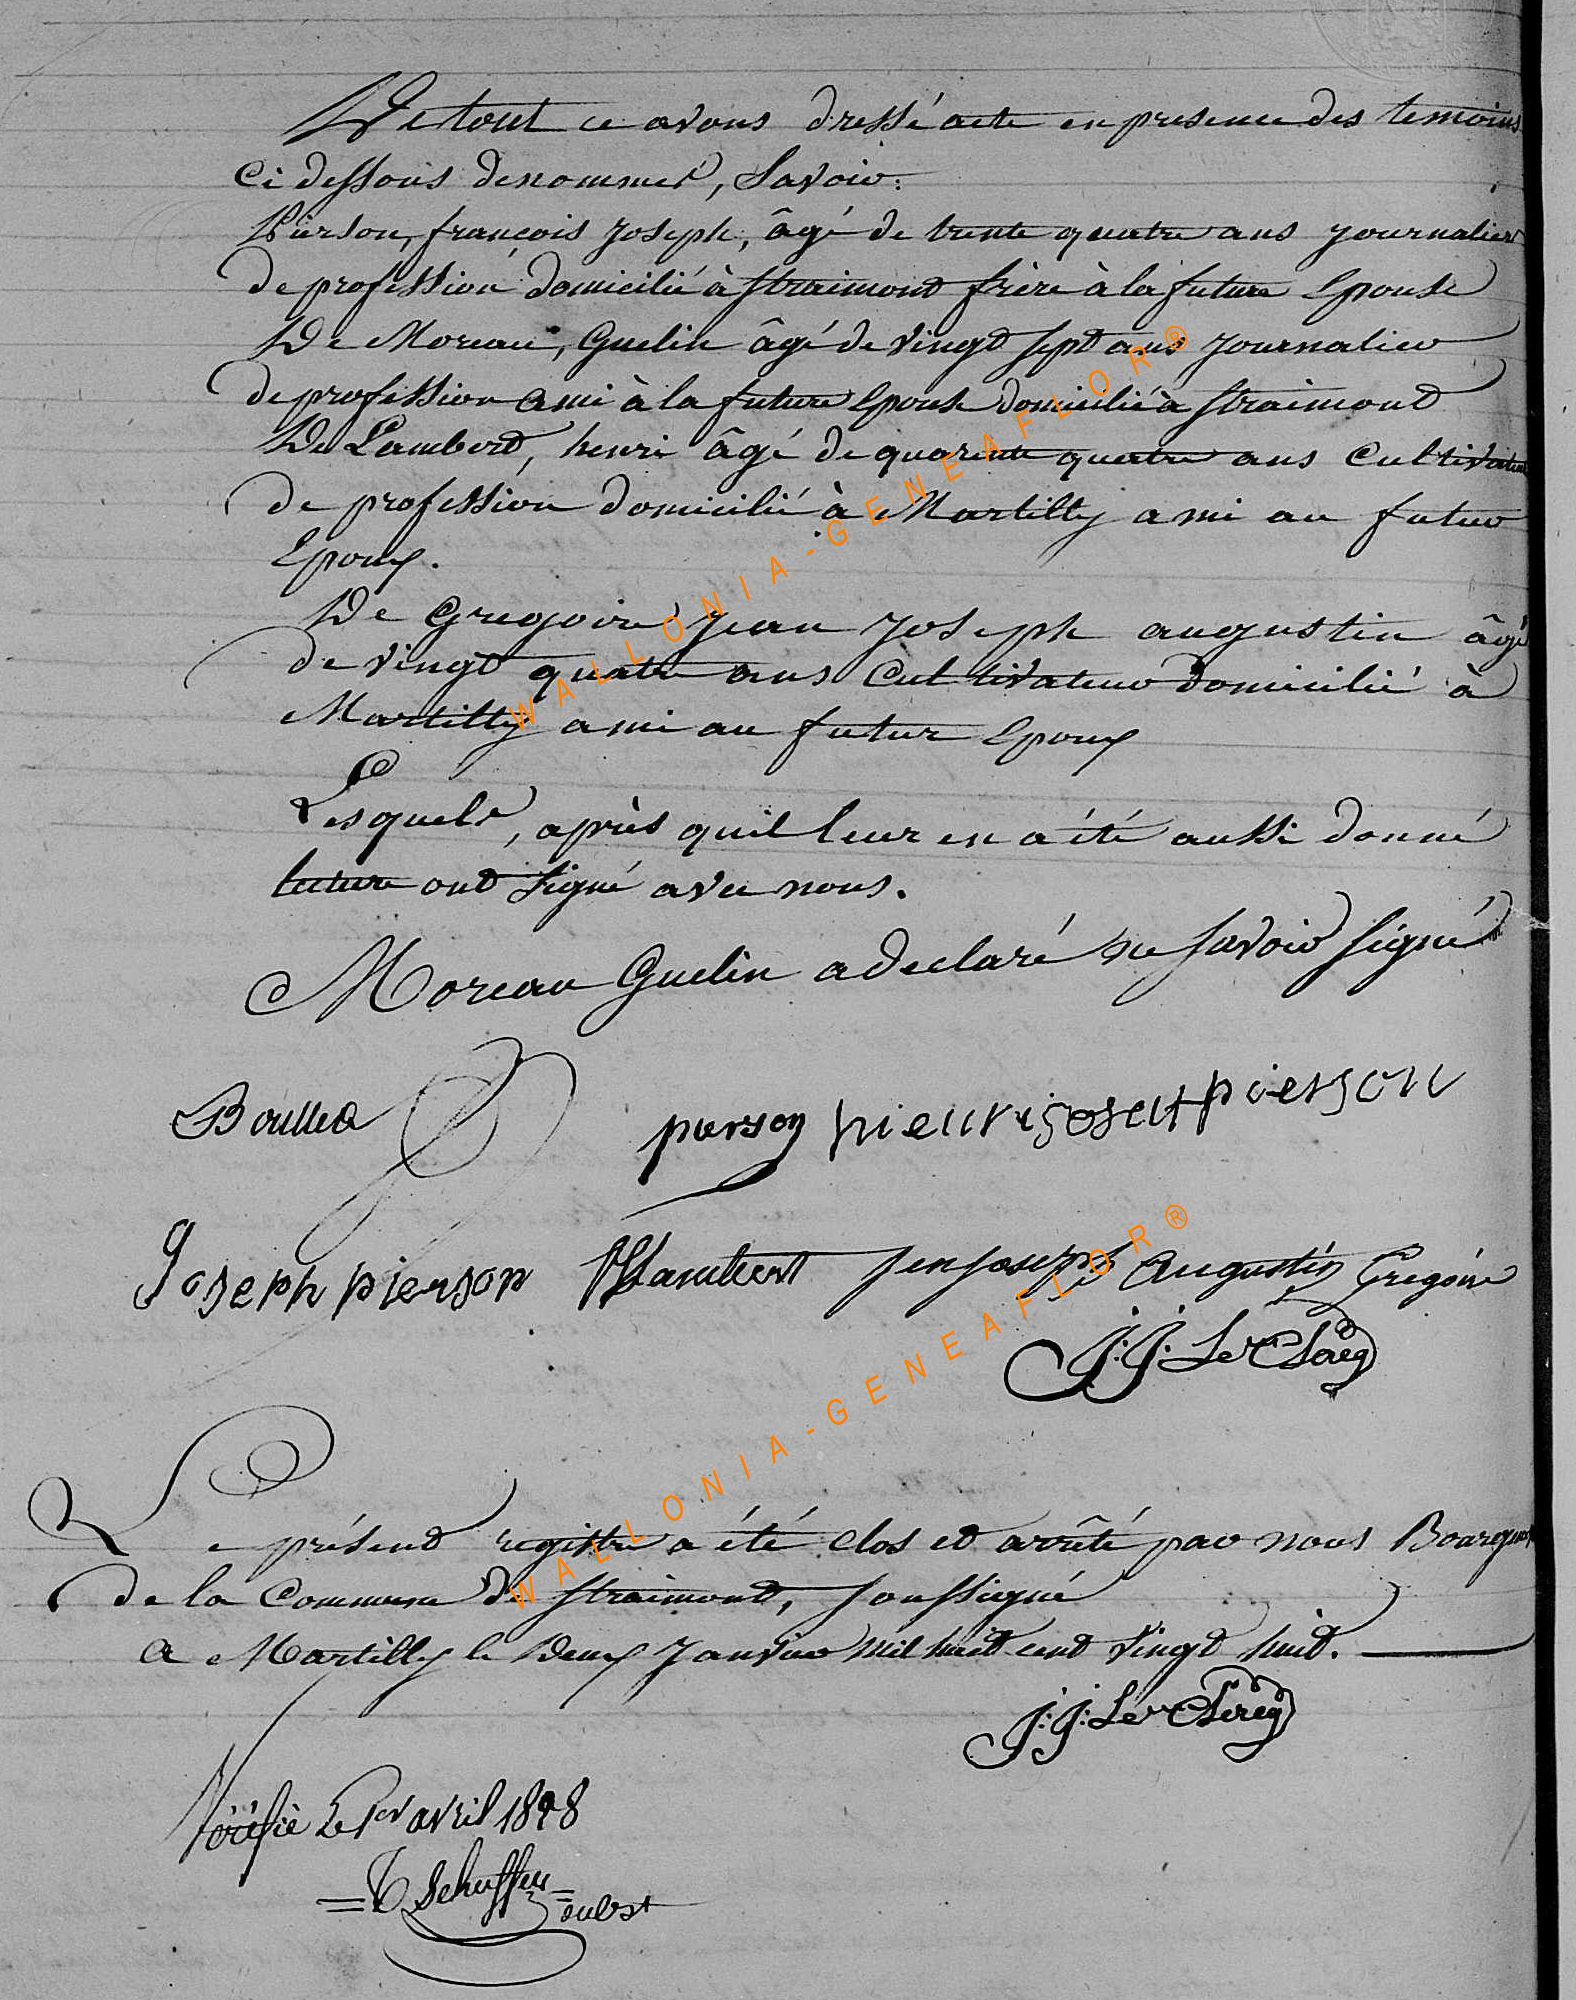 De tout ce avons dressé acte en presence des temoins
Ci dessous denommés, Savoir:
Pierson, françois Joseph, âgé de trente quatre ans journalier
de profession domicilié à Straimont frère à la future Epouse
De Moreau, Guelin âgé de vingt sept ans Journalier
de profession ami à la future Epouse domicilié à Straimont
De Lambert, henri âgé de quarente quatre ans Cultivateur
de profession domicilié à Martilly ami au futur
Epoux.
De Gregoire Jean Joseph augustin âgé
de vingt quatre ans Cultivateur domicilié à
Martilly ami au futur Epoux
Lesquels, après quil leur en a été aussi donné
lecture ont signé avec nous.
Moreau Guelin a declaré ne savoir signé
pierson pierson
Joseph pierson Lambert jen joseph Augustin Gregoire
J: J: Le
Le présent registre a été clos et arrêté par nous Bourgm
de la Commune de Straimont, soussigné
a Martilly le Deux Janvier mil huit cent vingt huit.
J: J: Le
Vérifié Le 1er avril 1828
WALLONIA-GENEAFLOR®
WALLONIA-GENEAFLOR®